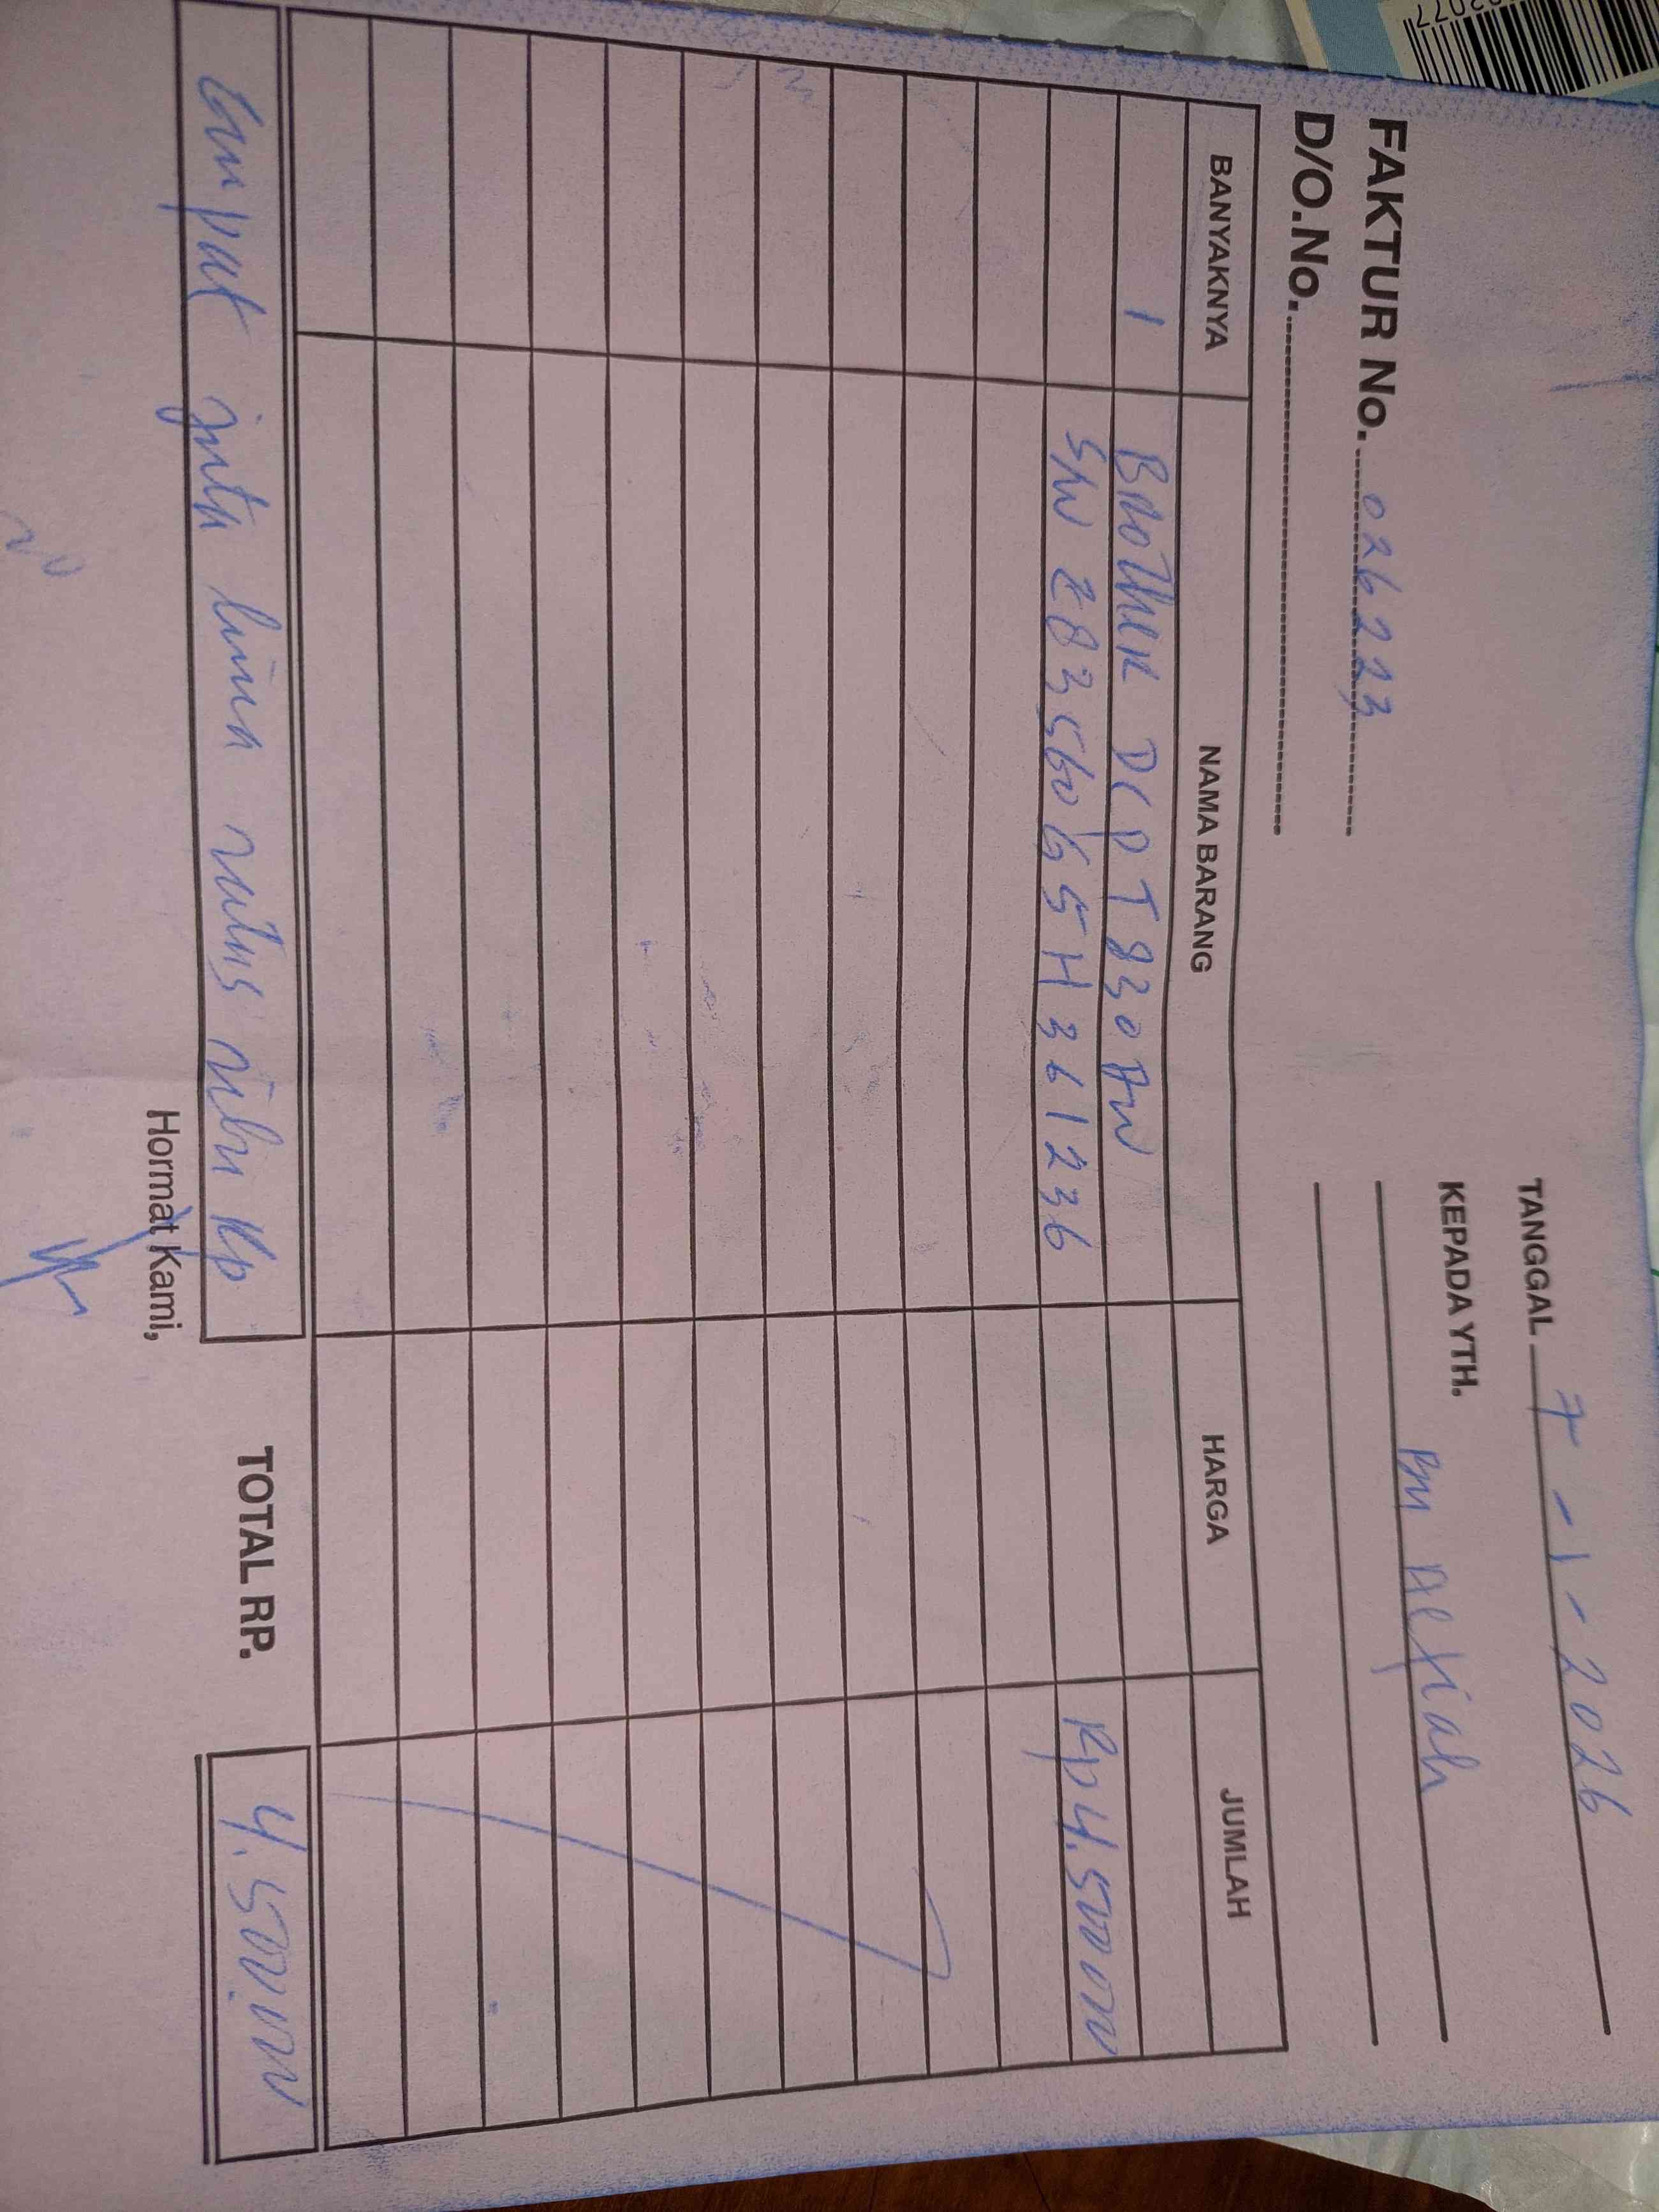 TANGGAL 7 - 1 - 2026
FAKTUR No. 026223
KEPADA YTH.
D/O.No.
BANYAKNYA NAMA BARANG HARGA JUMLAH
1 Brother DCP T830DW
S/N E83560 H361236 Rp 4.500.000
empat juta lima ratus ribu Rp TOTAL RP. 4.500.000
Hormat Kami,